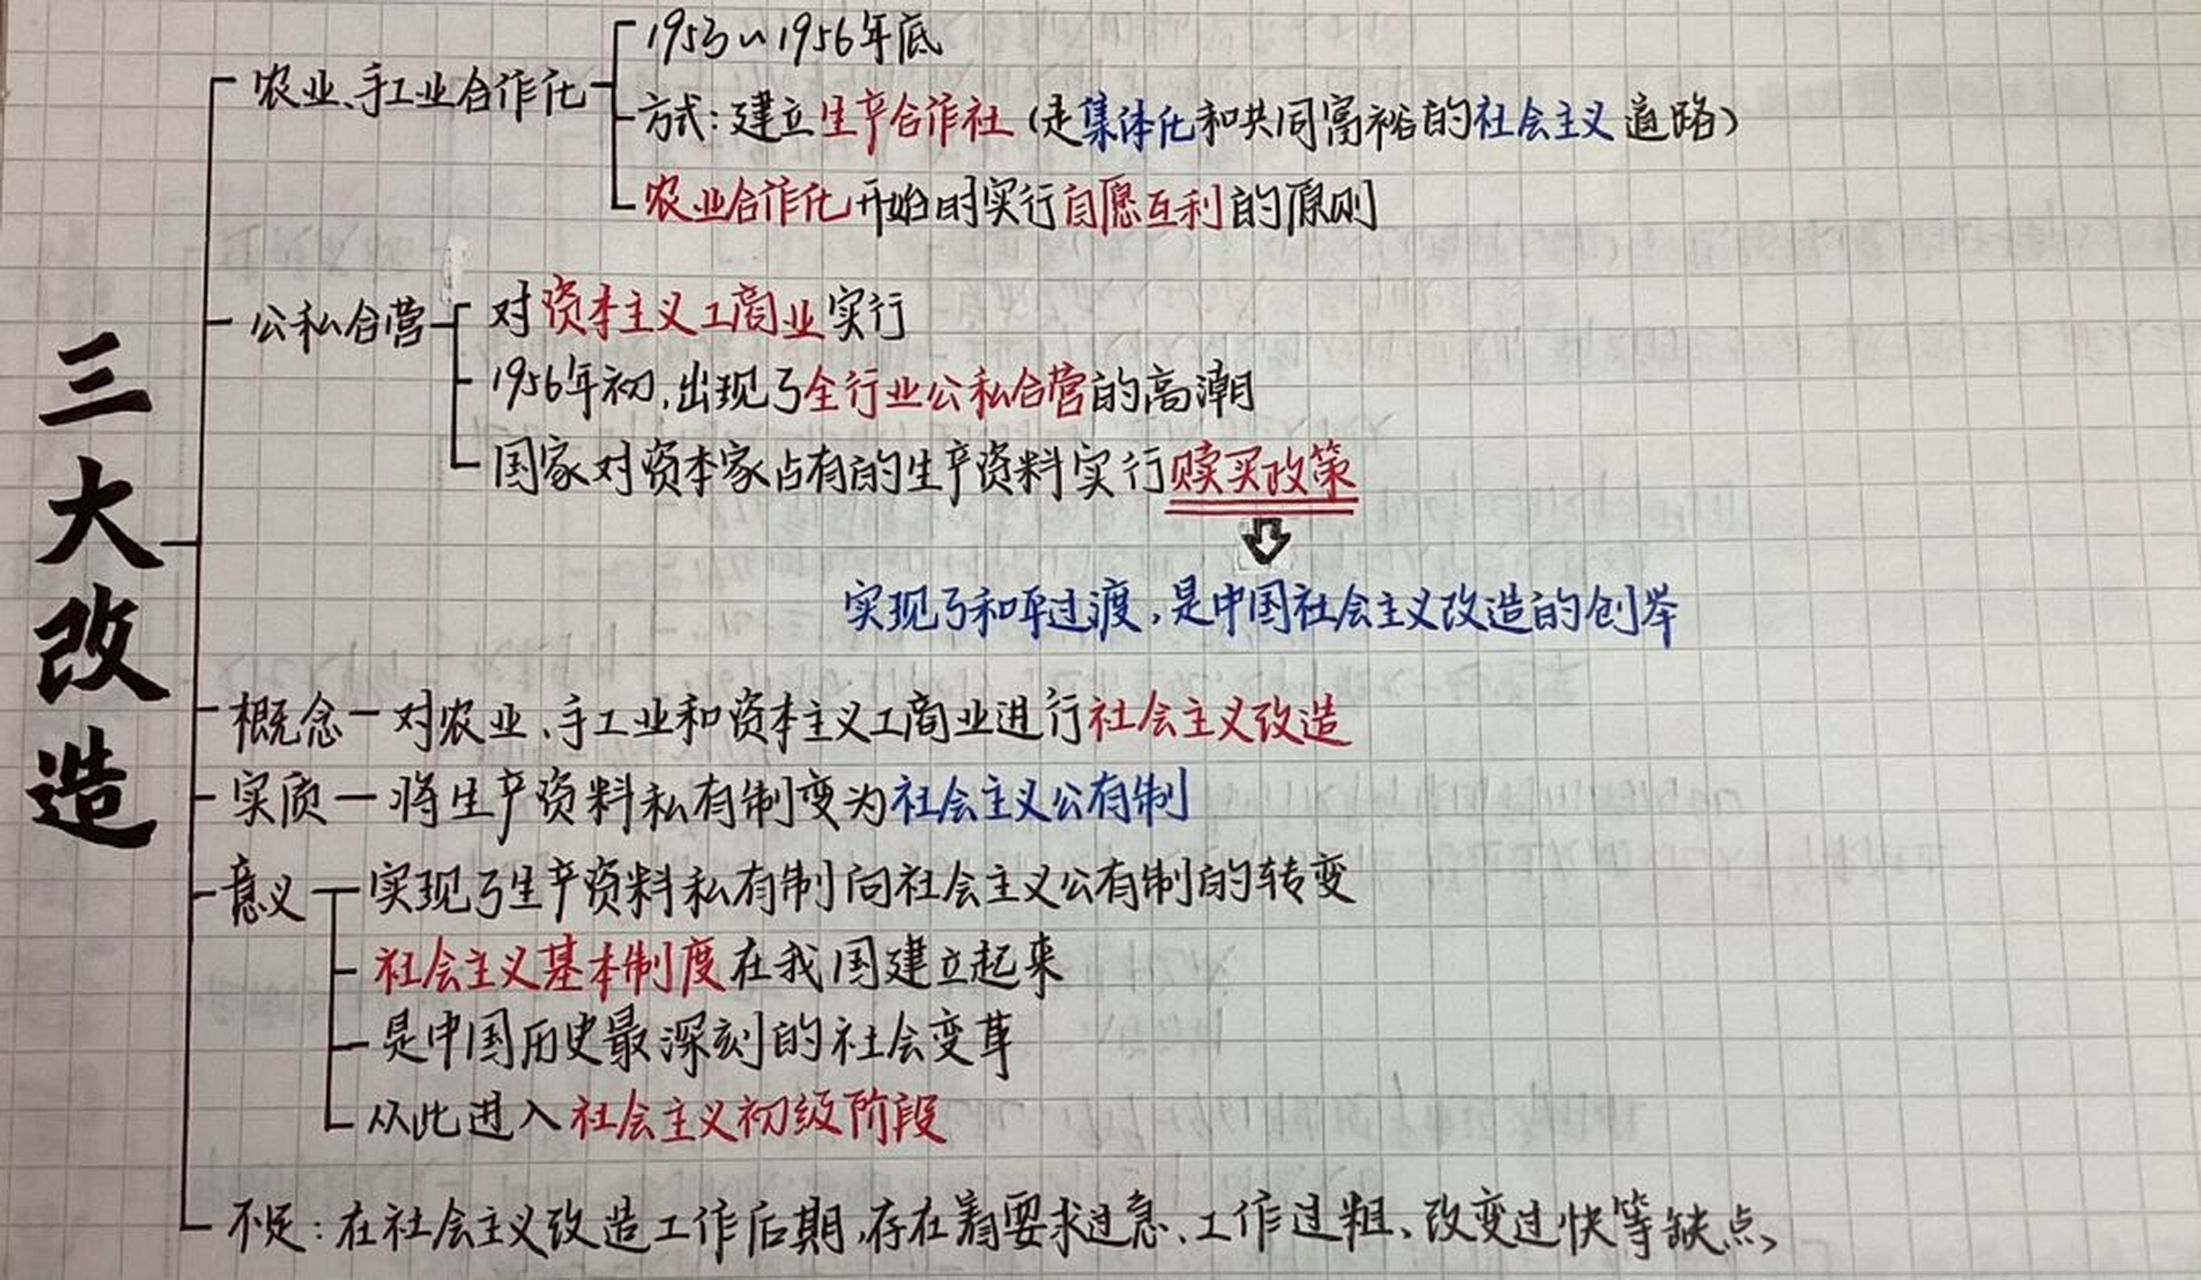 三大改造
农业、手工业合作化
1953~1956年底
方式:建立生产合作社(走集体化和共同富裕的社会主义道路)
农业合作化开始时实行自愿互利的原则
公私合营
对资本主义工商业实行
1956年初,出现了全行业公私合营的高潮
国家对资本家占有的生产资料实行赎买政策
实现了和平过渡,是中国社会主义改造的创举
概念—对农业、手工业和资本主义工商业进行社会主义改造
实质—将生产资料私有制变为社会主义公有制
意义
实现了生产资料私有制向社会主义公有制的转变
社会主义基本制度在我国建立起来
是中国历史最深刻的社会变革
从此进入社会主义初级阶段
不足:在社会主义改造工作后期,存在着要求过急、工作过粗、改变过快等缺点、